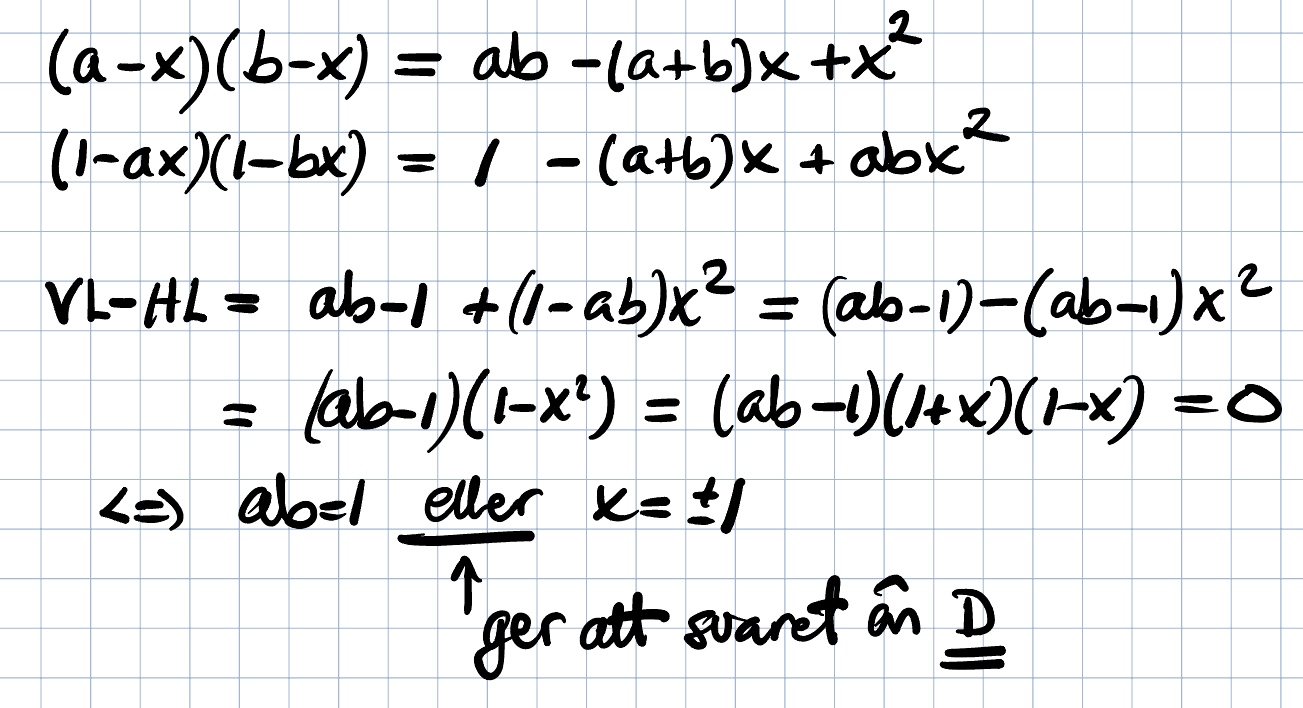 (a-x)(b-x) = ab -(a+b)x +x²
(1-ax)(1-bx) = 1 - (a+b)x + abx²
VL-HL = ab-1 +(1-ab)x² = (ab-1)-(ab-1)x²
= (ab-1)(1-x²) = (ab-1)(1+x)(1-x) = 0
<=> ab=1 eller x= ±1
↑
ger att svaret är D